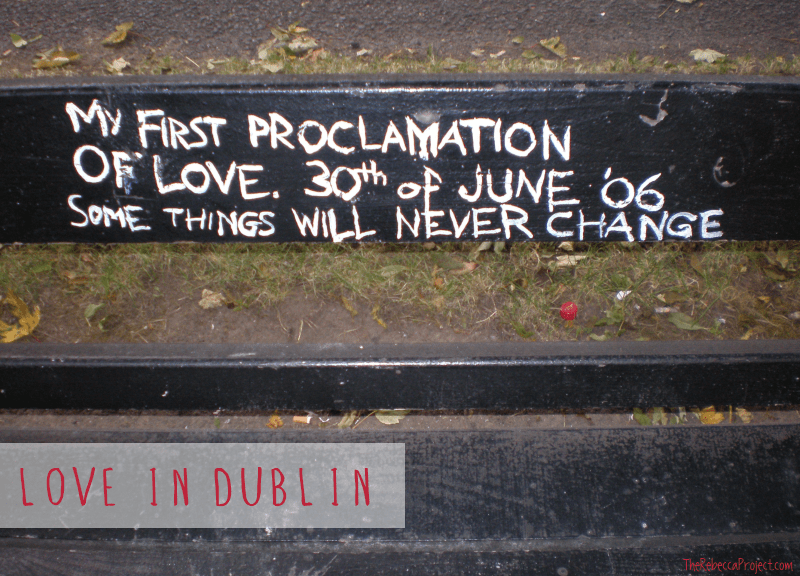 MY FIRST PROCLAMATION
OF LOVE. 30th of JUNE '06
SOME THINGS WILL NEVER CHANGE
LOVE IN DUBLIN
TheRebeccaProject.com